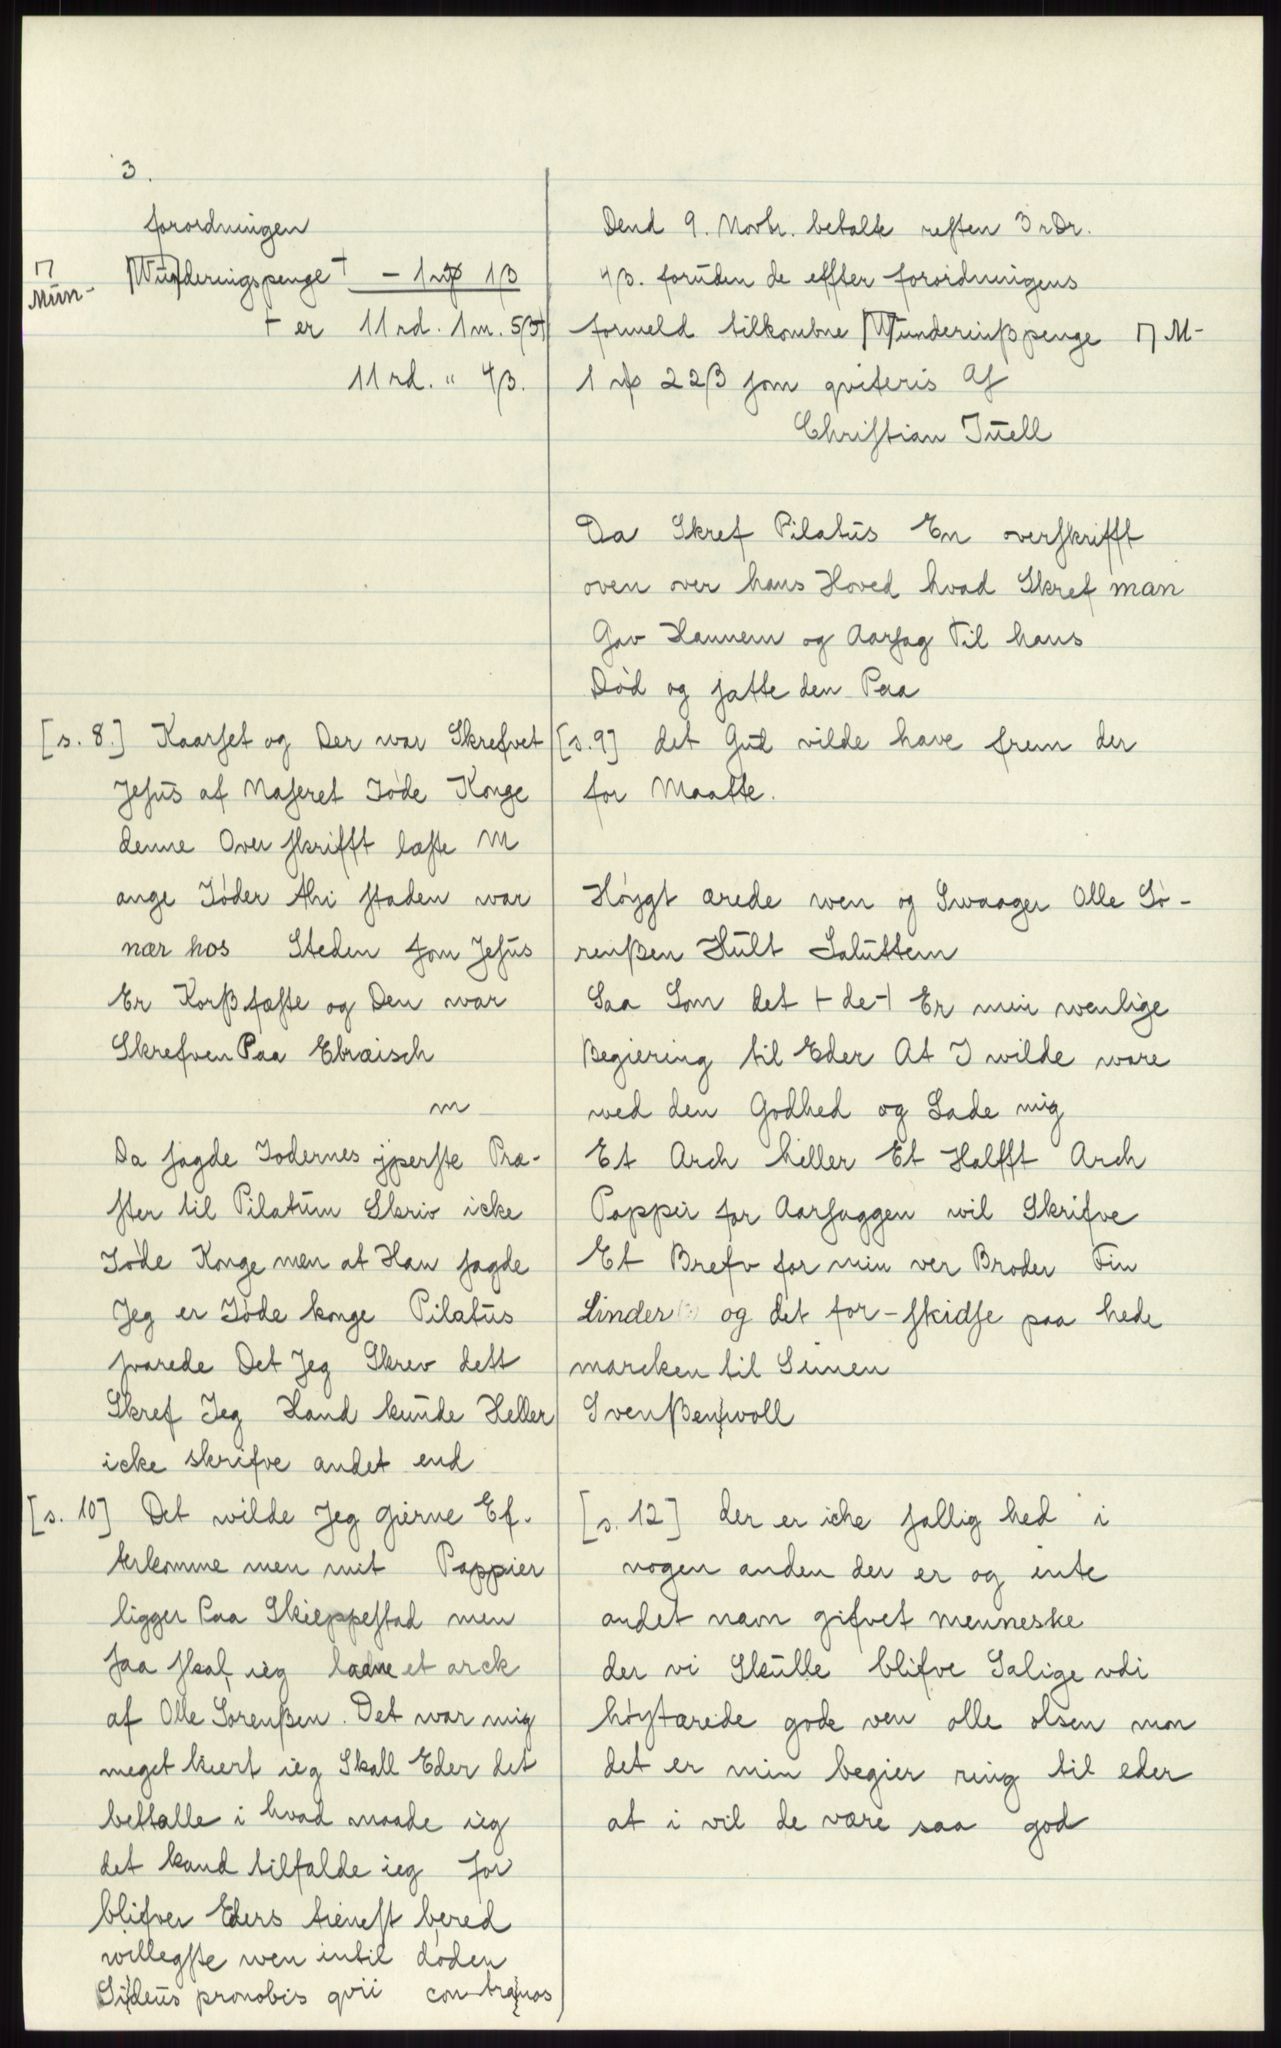 3.
forordningen
⊓ Mün- |Wün|deringspenge ⊢ – 1 mp 1 β
⊢ er 11 rd. 1 m. 5β ⊣
11 rd. " 4β.
[s. 8.] Kaarſet og Der war Skrefvet
Jeſus af Naſeret Jøde Konge
denne Over ſkrifft læſte M
ange Jøder thi ſtaden war
nær hos Steden ſom Jeſus
Er Korßfæſte og Den war
Skrefven Paa Ebraisch
m
Da ſagde Jodernes ypperſte Præ-
ſter til Pilatum Skriv icke
Jøde Konge men at Han ſagde
Jeg er Jøde konge Pilatus
ſvarede Det Jeg Skrev dett
Skref Jeg Hand kunde Heller
icke skrifve andet end
[s. 10] Det wilde Jeg gierne Ef-
terkomme men mit Pappier
ligger Paa Skieppeſtad men
ſaa ſkal ieg laane et arck
af Olle Sorenßen. Det war mig
meget kiert ieg Skall Eder det
bettalle i hvad maade ieg
det kand tilfalde ieg for
blifver Eders tieneſt bered
willegſte wen intil døden
Si|deus pronobis qvii con tra|nos
Dend 9. Novbr. betalte reſten 3 rDr.
4β. foruden de effter forordningens
formeld tilkombne |W|underinßpenge ⊓ M-
1 mp 22β ſom qviteris Af
Chriſtian Juell
Da Skref Pilatus En overſkrifft
oven over hans Hoved hvad Skref man
Gav Hannem og Aarſag Til hans
Død og ſatte den Paa
[s. 9] det Gud vilde have frem der
for Maatte.
Høygt ærede wen og Swaager Olle Sø-
renßen Hult Saluttem
Saa Som det ⊢ de ⊣ Er min wenlige
Begiering til Eder At I wilde ware
wed den Godhed og Lade mig
Et Arch heller Et Halfft Arch
Pappir for Aarſaggen wil Skrifve
Et Brefv for min ver Broder Fin
Linder (?) og det for-ſkidſe paa hede
marcken til Simen
Svenßen|woll
[s. 12] der er icke ſallig hed i
nogen anden der er og inte
andet navn gifvet menneske
der vi Skulle blifve Salige vdi
høystærede gode ven olle olsen mon
det er min begier ring til eder
at i vil de være saa god